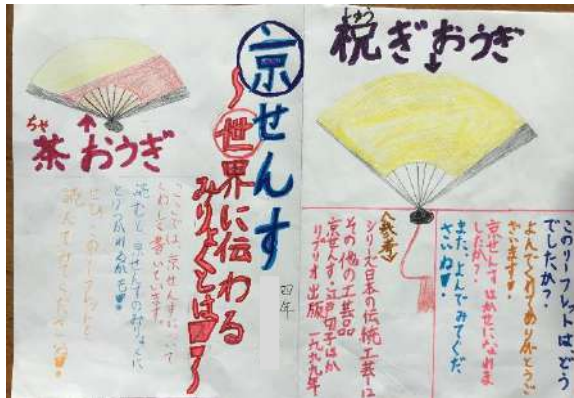 しゅう
祝ぎおうぎ
このリーフレットはどう
でしたか？
よんでくれてありがとうご
ざいます！
京せんすはかせになれま
したか？
また、よんでみてくだ
さいね
〈参考〉
シリーズ日本の伝統工芸12
その他の工芸品
京せんす・江戸切子ほか
リブリオ出版 一九九九年
京せんす
〜世界に伝わる
みりょくとは〜
四年
ちゃ
茶おうぎ
ここでは、京せんすについて
くわしく書いていきます。
読むと京せんすのみりょくに
とりつかれるかも
ぜひ、このリーフレットを
読んでみてくださいね